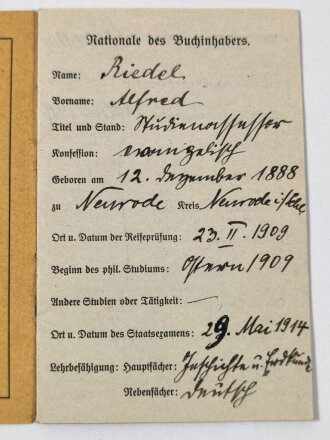 Nationale des Buchinhabers.
Name: Riedel
Vorname: Alfred
Titel und Stand: Studienassessor
Konfession: evangelisch
Geboren am 12. Dezember 1888
zu Neurode Kreis Neurode i/Schl
Ort u. Datum der Reifeprüfung: 23. II. 1909
Beginn des phil. Studiums: Ostern 1909
Andere Studien oder Tätigkeit: —
Ort u. Datum des Staatsexamens: 29. Mai 1914
Lehrbefähigung: Hauptfächer: Geschichte u. Erdkunde
Nebenfächer: Deutsch